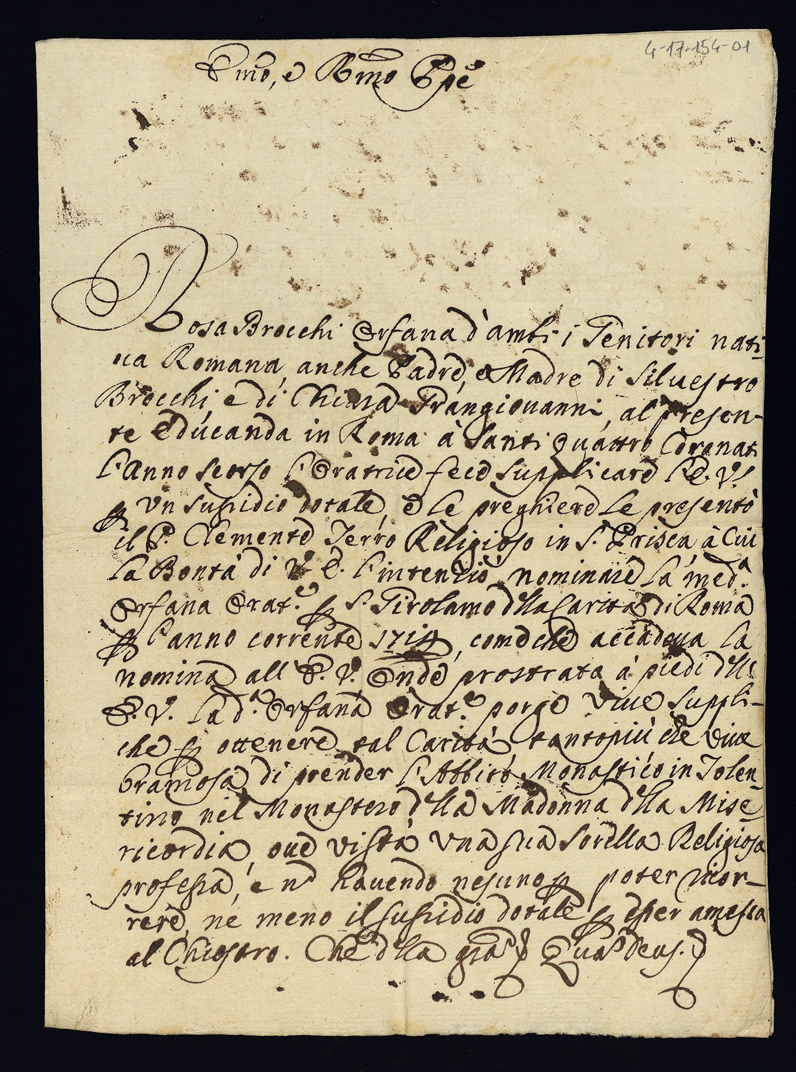 4-17-154-01
Emo, e Rmo Ppe
Rosa Brocchi Orfana d'ambi i Genitori nati-
va Romana, anche Padre, e Madre di Silvestro
Brocchi, e di Chiara Frangiovanni, al presen-
te Educanda in Roma à Santi Quattro Coronati
l'Anno scorso l'Oratrice fece supplicare l'E. V.
p un sussidio dotale, e le preghiere le presentò
il P. Clemente Religioso in S. Prisca à Cui
la Bontà di V. E. l'intenziò nominare la med.a
Orfana Orat.e p S. Girolamo d'lla Carità di Roma
p l'anno corrente 1714, come che accadeva la
nomina all' E. V. Onde prostrata à piedi d'll'
E. V. la d.a Orfana Orat.e porge vive suppli-
che p ottenere tal Carità tantopiù che vive
bramosa di prender l'Abbito Monastico in Tolen-
tino nel Monastero d'lla Madonna d'lla Mise-
ricordia, ove vi stà una sua Sorella Religiosa
professa, e nō havendo nesuno p poter ricor-
rere, ne meno il sussidio dotale p esser amessa
al Chiostro. Che d'lla gra Quas Deus.